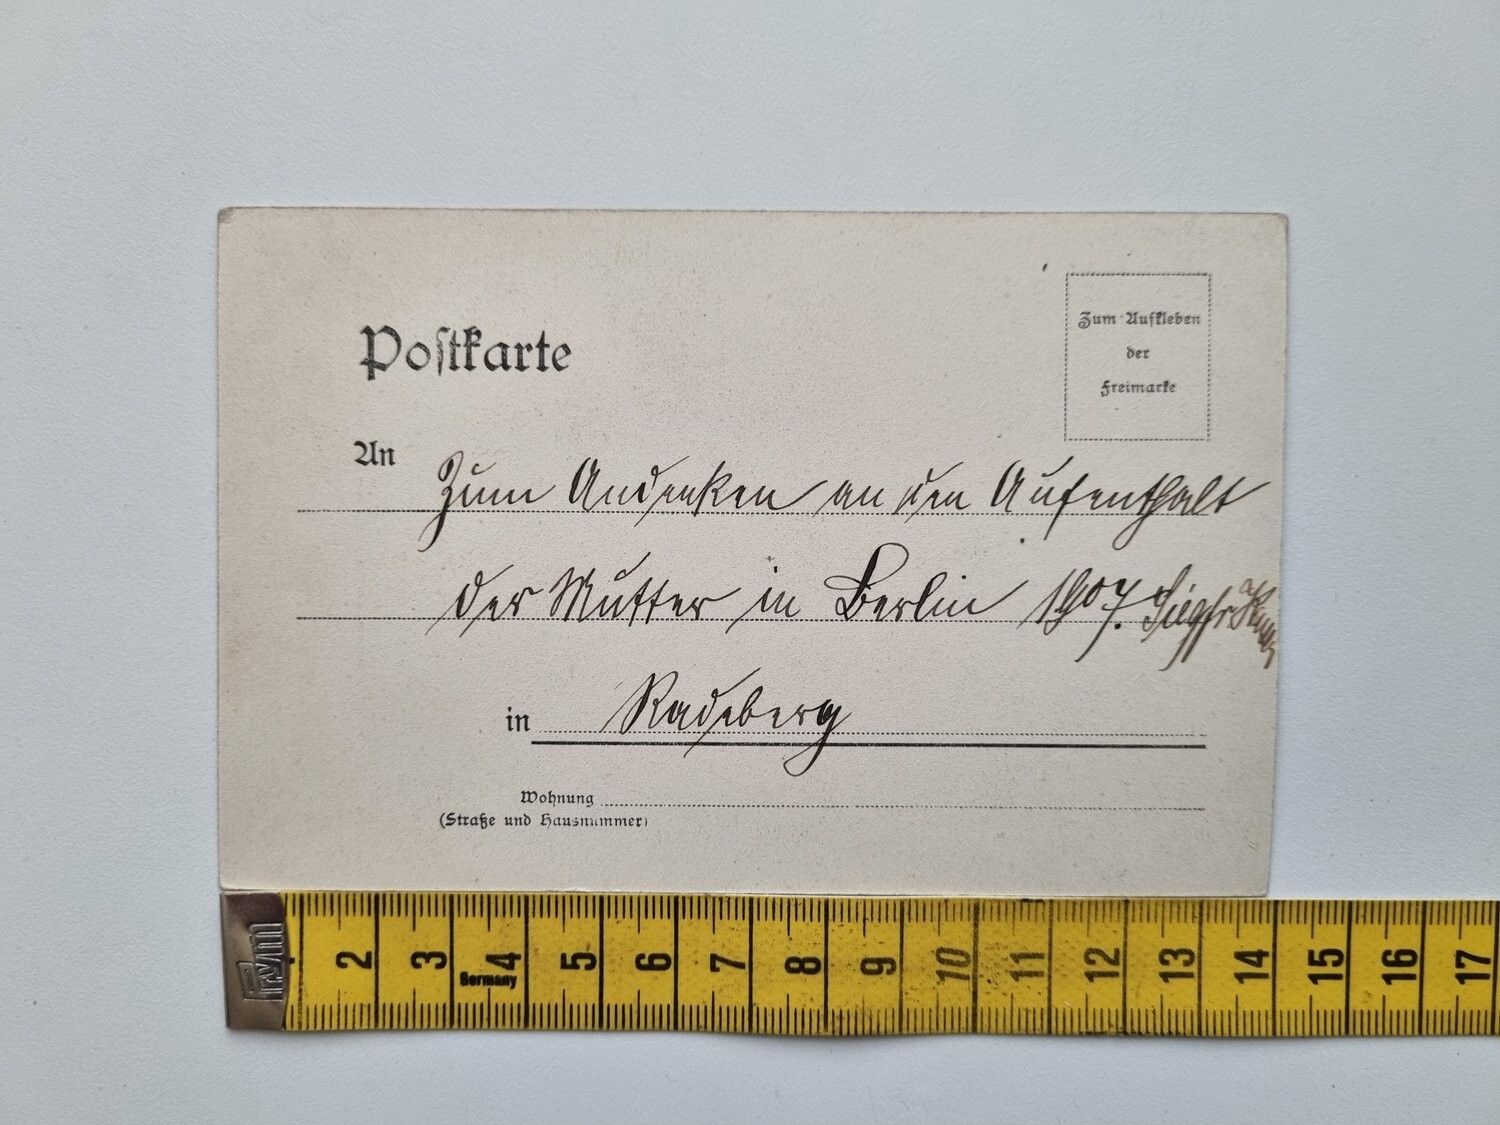 Postkarte
Zum Aufkleben
der
Freimarke
An Zum Andenken an den Aufenthalt
der Mutter in Berlin 1907.
in Radeberg
Wohnung
(Straße und Hausnummer)
Prym
2 3 4 5 6 7 8 9 10 11 12 13 14 15 16 17
Germany